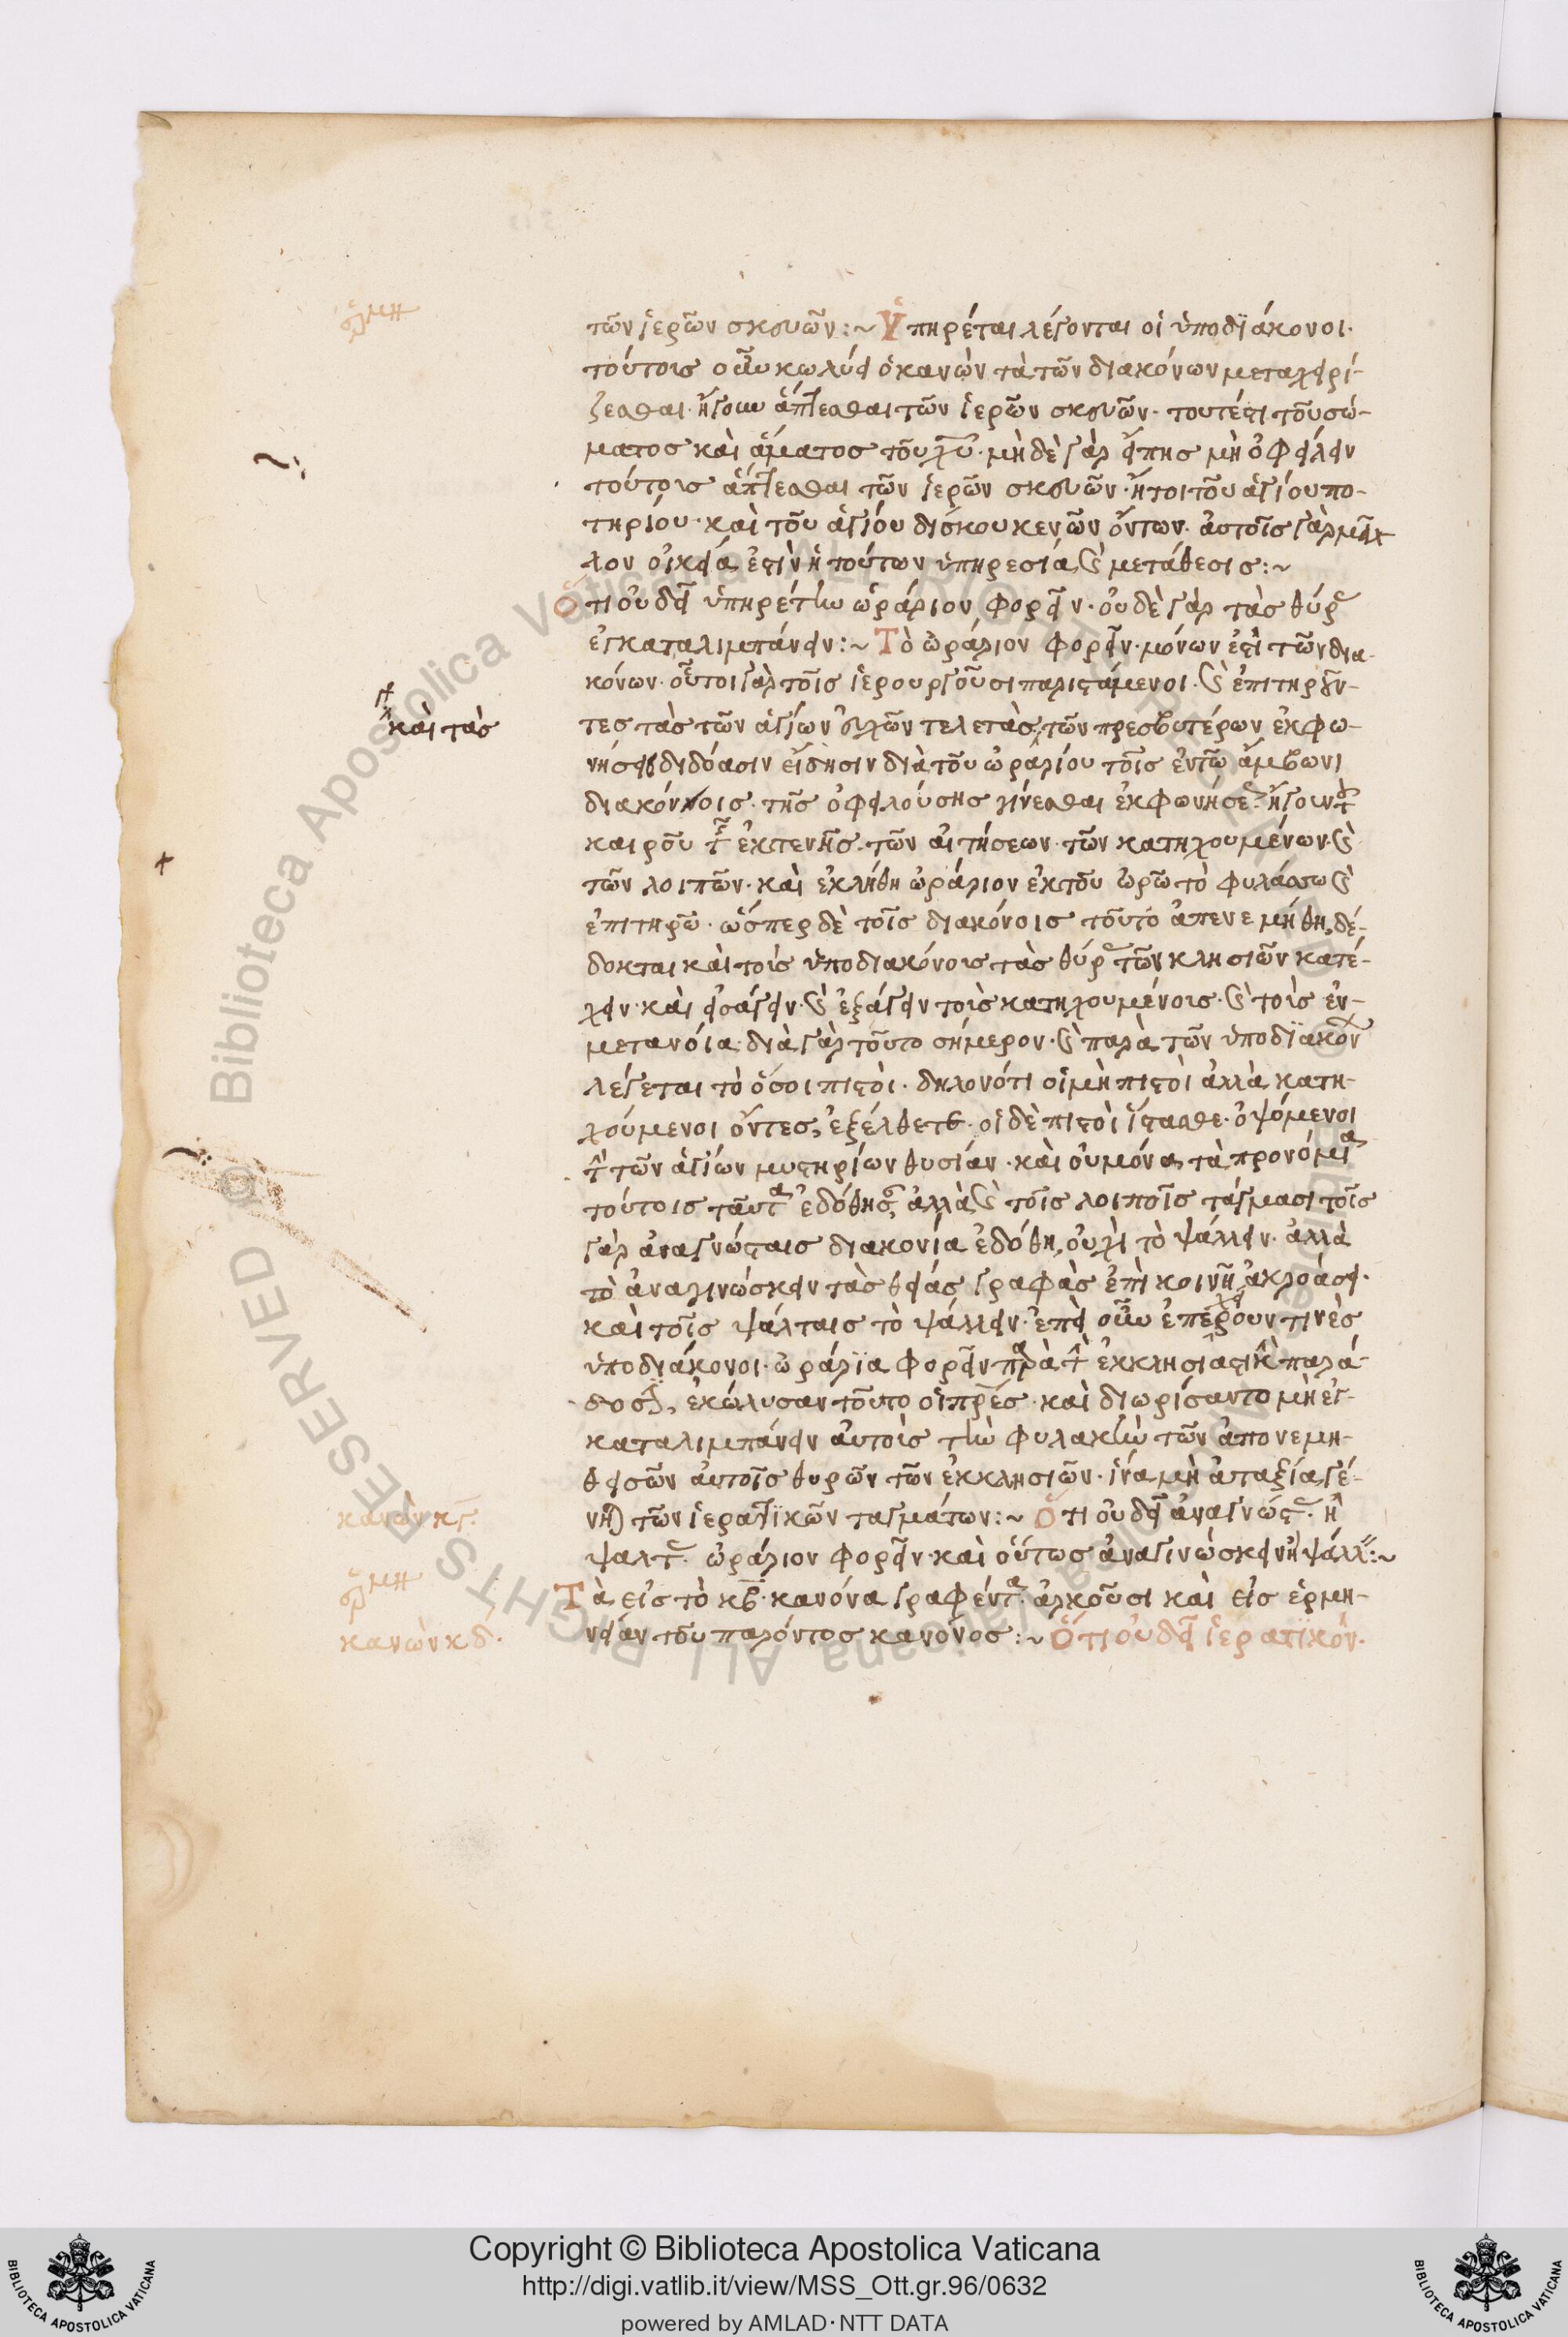 ἑρμη
τῶν ἱερῶν σκευῶν:~ Ὑπηρέται λέγονται οἱ ὑποδϊάκονοι·
τούτοις οὖν κωλύει ὁ κανὼν τὰ τῶν διακόνων μεταχειρί-
ζεσθαι· ἤγουν ἅπτεσθαι τῶν ἱερῶν σκευῶν· τουτέστι τοῦ σώ-
ματος καὶ αἵματος τοῦ χυ· μὴ δὲ γὰρ εἴπης μὴ ὀφείλειν
τούτοις ἅπτεσθαι τῶν ἱερῶν σκευῶν· ἤτοι τοῦ ἁγίου πο-
τηρίου· καὶ τοῦ ἁγίου δίσκου κενῶν ὄντων· αὐτοῖς γὰρ μᾶλ
λον οἰκεία ἐστὶν ἡ τούτων ὑπηρεσία, καὶ μετάθεσις:~
Ὅτι οὐ δεῖ ὑπηρέτην ὡράριον φορεῖν· οὐδὲ γὰρ τὰς θύρας
ἐγκαταλιμπάνειν:~ Τὸ ὡράριον φορεῖν· μόνων ἐστὶ τῶν δια-
κόνων· οὗτοι γὰρ τοῖς ἱερουργοῦσι παριστάμενοι· καὶ ἐπιτηροῦν-
καὶ τὰς
τες τὰς τῶν ἁγίων εὐχῶν τελετὰς, τῶν πρεσβυτέρων ἐκφω-
νήσεις διδόασιν εἴδησιν διὰ τοῦ ὡραρίου τοῖς ἐν τῶ ἄμβωνι
διακόνοις· τῆς ὀφειλούσης γίνεσθαι ἐκφωνήσεως· ἤγουν τοῦ
καιροῦ τῆς ἐκτενῆς· τῶν αἰτήσεων· τῶν κατηχουμένων· καὶ
τῶν λοιπῶν· καὶ ἐκλήθη ὡράριον ἐκ τοῦ ὡρῶ τὸ φυλάσσω καὶ
ἐπιτηρῶ· ὥσπερ δὲ τοῖς διακόνοις τοῦτο ἀπενεμήθη, δέ-
δοκται καὶ τοῖς ὑποδιακόνοις τὰς θύρας τῶν κλησιῶν κατέ-
χειν· καὶ εἰσάγειν· καὶ ἐξάγειν τοῖς κατηχουμένοις· καὶ τοῖς ἐν-
μετανόια· διὰ γὰρ τοῦτο σήμερον· καὶ παρὰ τῶν ὑποδϊακόν
λέγεται τὸ ὅσοι πιστοὶ· δηλονότι οἱ μὴ πιστοὶ ἀλλὰ κατη-
χούμενοι ὄντες, ἐξέλθετε· οἱ δὲ πιστοὶ ἵστασθε· ὀψόμενοι
τὴν τῶν ἁγίων μυστηρίων θυσίαν· καὶ οὐ μόνα τὰ προνόμια
τούτοις ταῦτα ἐδόθησαν, ἀλλὰ καὶ τοῖς λοιποῖς τάγμασι τοῖς
γὰρ ἀναγνώσταις διακονία ἐδόθη, οὐχὶ τὸ ψάλλειν· ἀλλὰ
τὸ ἀναγινώσκειν τὰς θείας γραφὰς ἐπὶ κοινῆ ἀκροάσει·
καὶ τοῖς ψάλταις τὸ ψάλλειν· ἐπεὶ οὖν ἐπεχείρουν τινὲς
ὑποδιάκονοι· ὡράρϊα φορεῖν παρὰ τὴν ἐκκλησιαστικὴν παρά-
δοσιν, ἐκώλυσαν τοῦτο οἱ πρες· καὶ διωρίσαντο μὴ ἐγ-
καταλιμπάνειν αὐτοῖς τὴν φυλακὴν τῶν ἀπονεμη-
θεισῶν αὐτοῖς θυρῶν τῶν ἐκκλησιῶν· ἵνα μὴ ἀταξία γέ-
κανὼν κγ·
νηται τῶν ἱερατϊκῶν ταγμάτων:~ Ὅτι οὐ δεῖ ἀναγνώστας· ἢ
ψαλτας· ὡράριον φορεῖν· καὶ οὕτως ἀναγινώσκειν ἢ ψάλλειν:~
ἑρμη
Τὰ εἰς τὸ κβ· κανόνα γραφέντα· ἀρκοῦσι καὶ εἰς ἑρμη-
κανὼν κδ·
νείαν τοῦ παρόντος κανόνος:~ Ὅτι οὐ δεῖ ἱερατικόν·
Copyright © Biblioteca Apostolica Vaticana
http://digi.vatlib.it/view/MSS_Ott.gr.96/0632
powered by AMLAD·NTT DATA